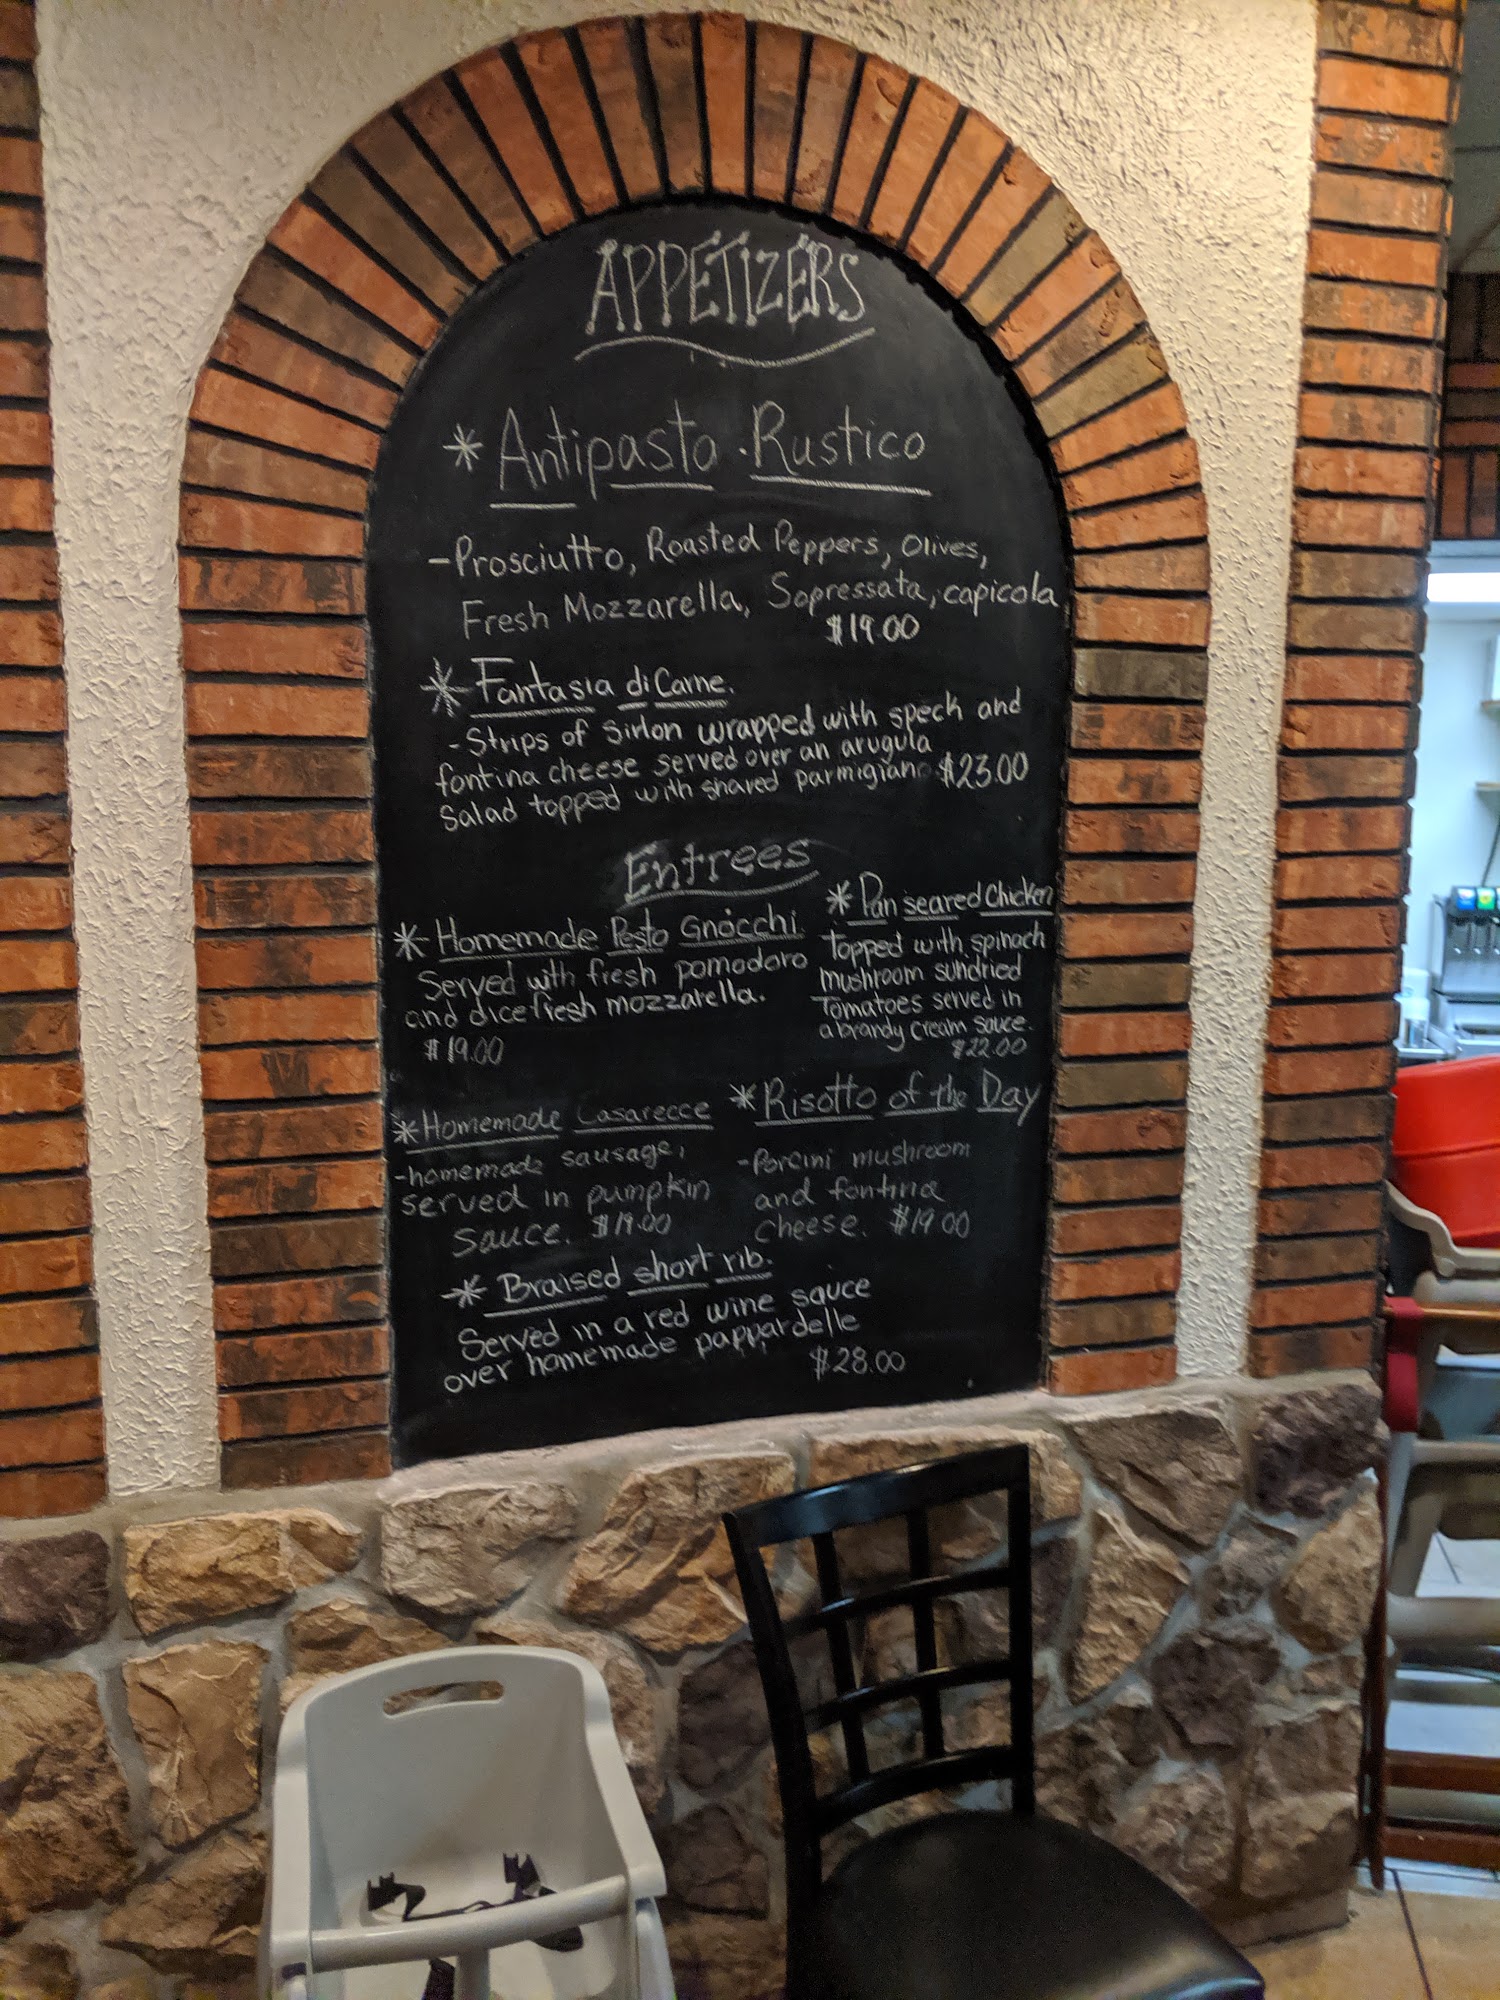 APPETIZERS
* Antipasto . Rustico
- Prosciutto, Roasted Peppers, Olives,
Fresh Mozzarella, Sopressata, capicola,
$19.00
* Fantasia di Carne.
- Strips of Sirlon wrapped with speck and
fontina cheese served over an arugula
Salad topped with shaved parmigiano $23.00
Entrees
* Homemade Pesto Gnocchi.
Served with fresh pomodoro
and dice fresh mozzarella.
$19.00
* Pan seared Chicken
topped with spinach
mushroom sundried
Tomatoes served in
a brandy cream sauce.
$22.00
* Homemade Casarecce
- homemade sausage,
served in pumpkin
sauce. $19.00
* Risotto of the Day
- Porcini mushroom
and fontina
cheese. $19.00
* Braised short rib.
Served in a red wine sauce
over homemade pappardelle
$28.00